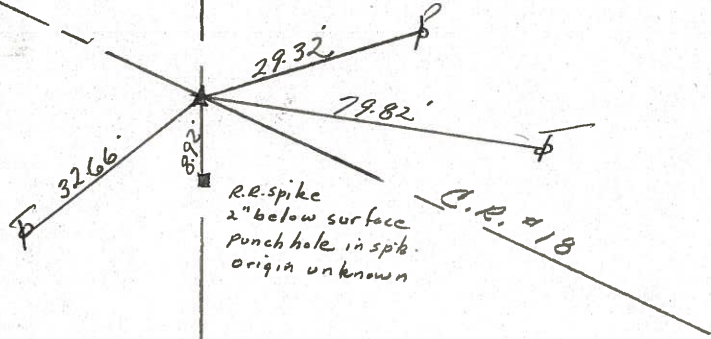 29.32'
79.82'
8.92'
32.66'
R.R. spike
2" below surface
punch hole in spk.
origin unknown
C.R. #18